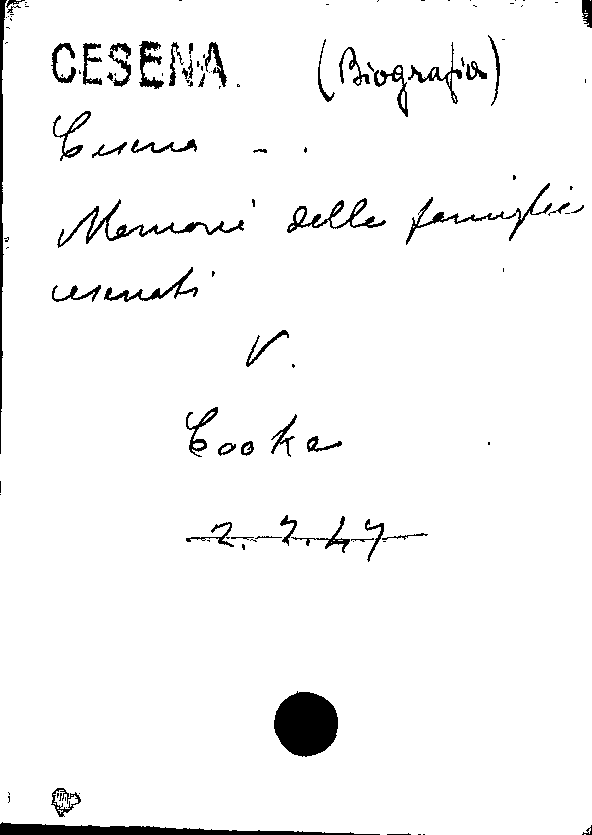 CESENA. (Biografia)
Cesena - .
Memorie delle famiglie
cesenati
V.
Cooke
2. 2. 47